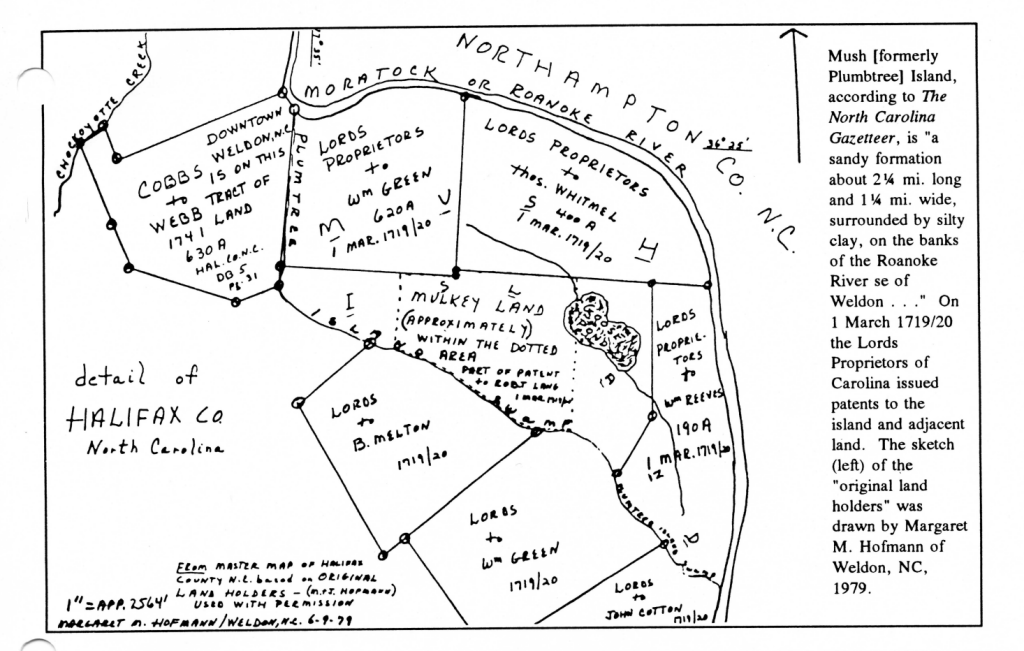 NORTHAMPTON
CO. N.C.
36° 25'
77° 35'
MORATOCK OR ROANOKE RIVER
CHOCKOYOTTE CREEK
DOWNTOWN
WELDON, N.C.
IS ON THIS
TRACT OF
LAND
COBBS
to
WEBB
1741
630 A
HAL. CO. N.C.
DB 5
PG. 31
PLUMTREE
LORDS
PROPRIETORS
to
Wm GREEN
620A
1 MAR. 1719/20
LORDS PROPRIETORS
to
Thos. WHITMEL
400 A
1 MAR. 1719/20
M U S H
I S L A N D
MULKEY LAND
(APPROXIMATELY)
WITHIN THE DOTTED
AREA
PART OF PATENT
to ROBT LANG
1 MAR 1719/20
ISLAND
SWAMP
POND
LORDS
PROPRIE-
TORS
to
Wm REEVES
190 A
1 MAR. 1719/20
LORDS
to
B. MELTON
1719/20
LORDS
to
Wm GREEN
1719/20
LORDS
to
JOHN COTTON
1719/20
detail of
HALIFAX CO.
North Carolina
FROM MASTER MAP OF HALIFAX
COUNTY N.C. based on ORIGINAL
LAND HOLDERS – (M.+J. HOFMANN)
USED WITH PERMISSION
1" = APP. 2564'
MARGARET M. HOFMANN/WELDON, N.C. 6-9-79
Mush [formerly
Plumbtree] Island,
according to The
North Carolina
Gazetteer, is "a
sandy formation
about 2¼ mi. long
and 1¼ mi. wide,
surrounded by silty
clay, on the banks
of the Roanoke
River se of
Weldon . . ." On
1 March 1719/20
the Lords
Proprietors of
Carolina issued
patents to the
island and adjacent
land. The sketch
(left) of the
"original land
holders" was
drawn by Margaret
M. Hofmann of
Weldon, NC,
1979.